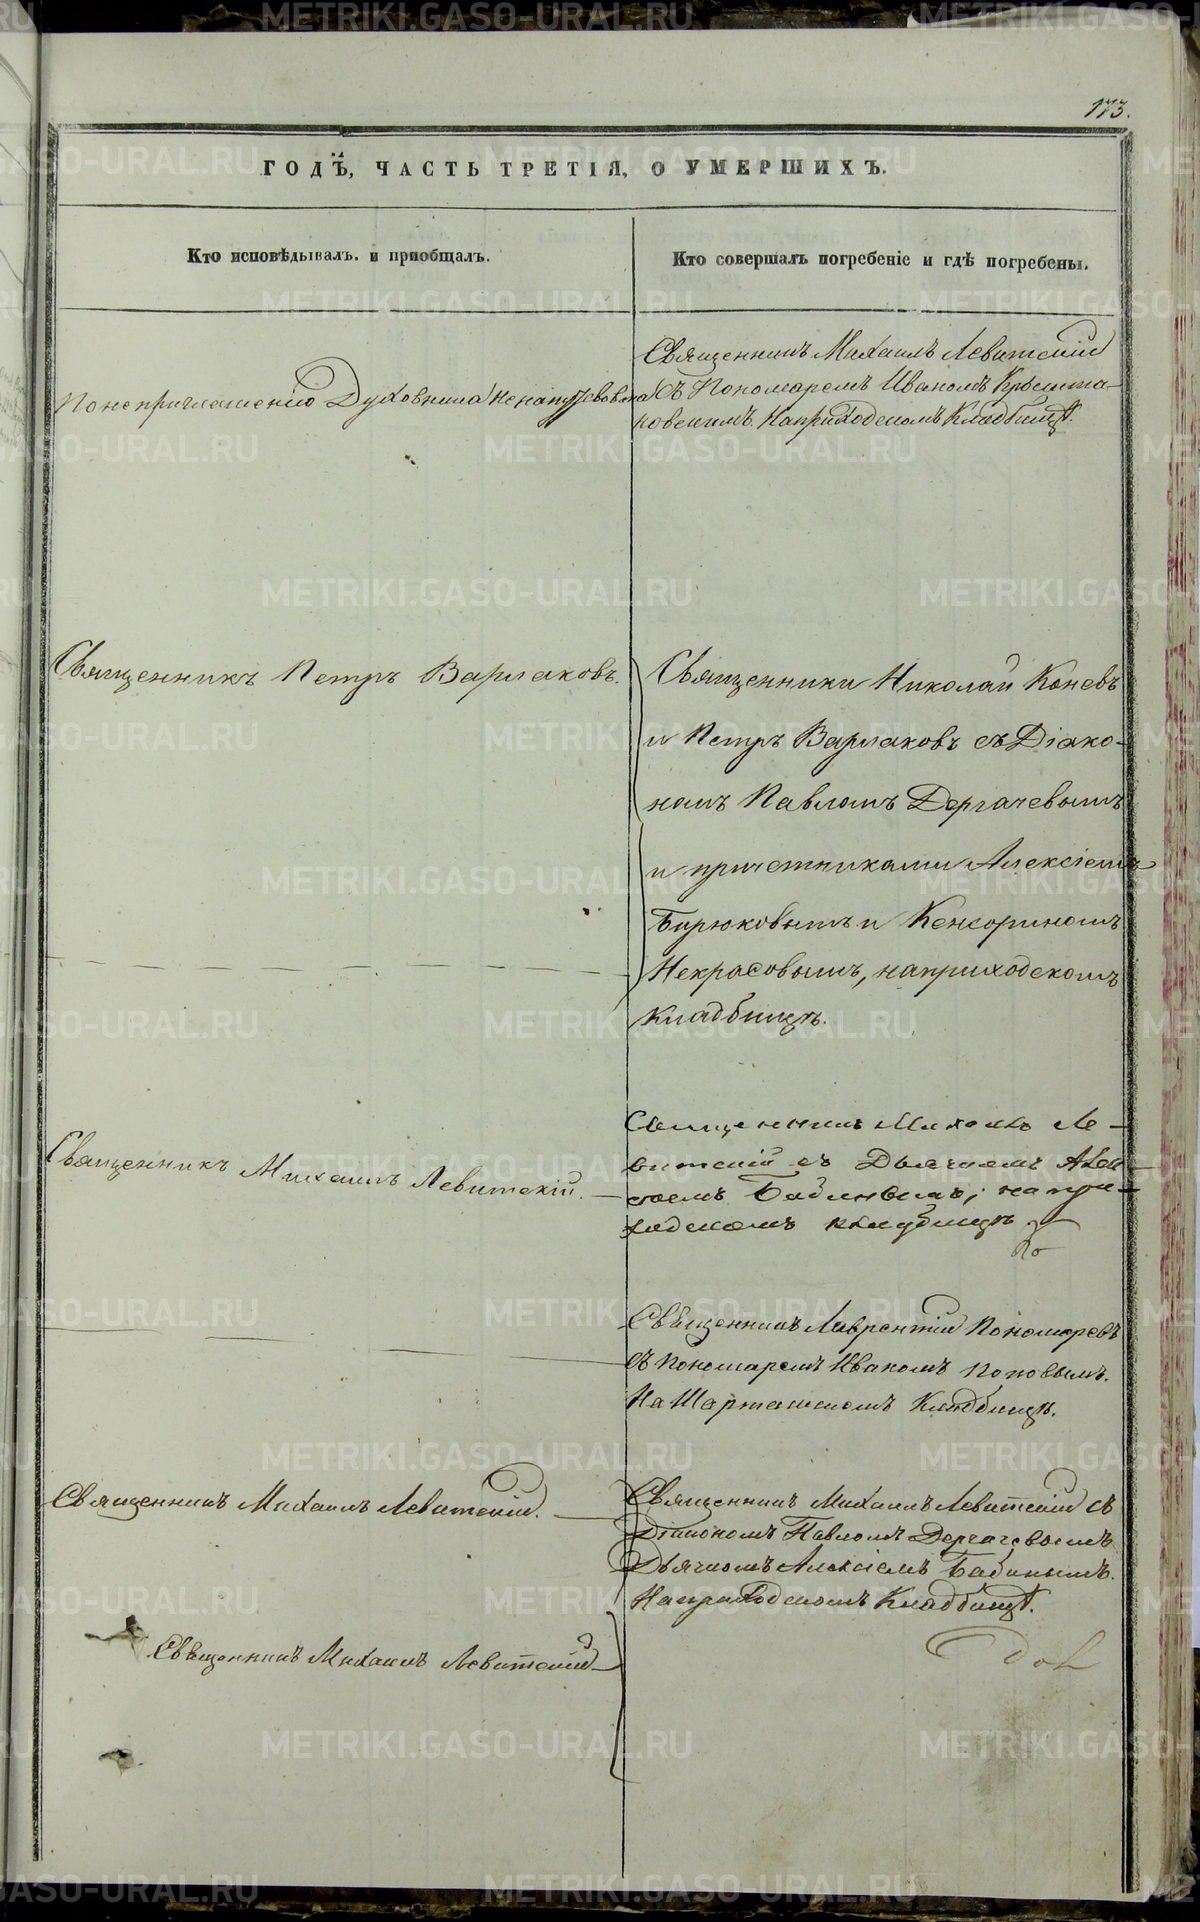 173.
ГОДѢ, ЧАСТЬ ТРЕТІЯ, О УМЕРШИХЪ.
Кто исповѣдывалъ и пріобщалъ.
Кто совершалъ погребеніе и гдѣ погребены.
По не приглашенію Духовника
Священникъ Михаилъ Левитскій
съ Пономаремъ Иваномъ
На приходскомъ Кладбищѣ.
Священникъ Петръ Варлаковъ.
Священники Николай Коневъ
и Петръ Варлаковъ съ Діако-
номъ Павломъ Дергачевымъ
и причетниками Алексіемъ
Бирюковымъ и Кенсориномъ
Некрасовымъ, на приходскомъ
кладбищѣ.
Священникъ Михаилъ Левитскій.
Священникъ Михаилъ Ле-
витскій съ Дьячкомъ Алек-
сѣемъ на при-
ходскомъ кладбищѣ
Священникъ Лаврентій Пономаревъ
съ Пономаремъ Иваномъ Поповымъ.
На Шарташскомъ Кладбищѣ.
Священникъ Михаилъ Левитскій.
Священникъ Михаилъ Левитскій съ
Діакономъ Павломъ Дергачевымъ
Дьячкомъ Алексіемъ Бабинымъ.
На приходскомъ Кладбищѣ.
Священникъ Михаилъ Левитскій
METRIKI.GASO-URAL.RU